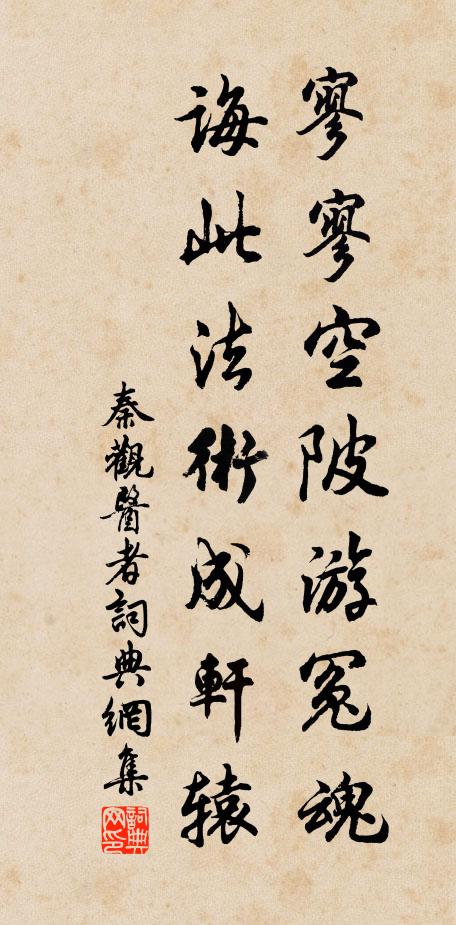 寥寥空陂游冤魂
誨此法術成軒辕
秦觀醫者詞典網集
詞典网印